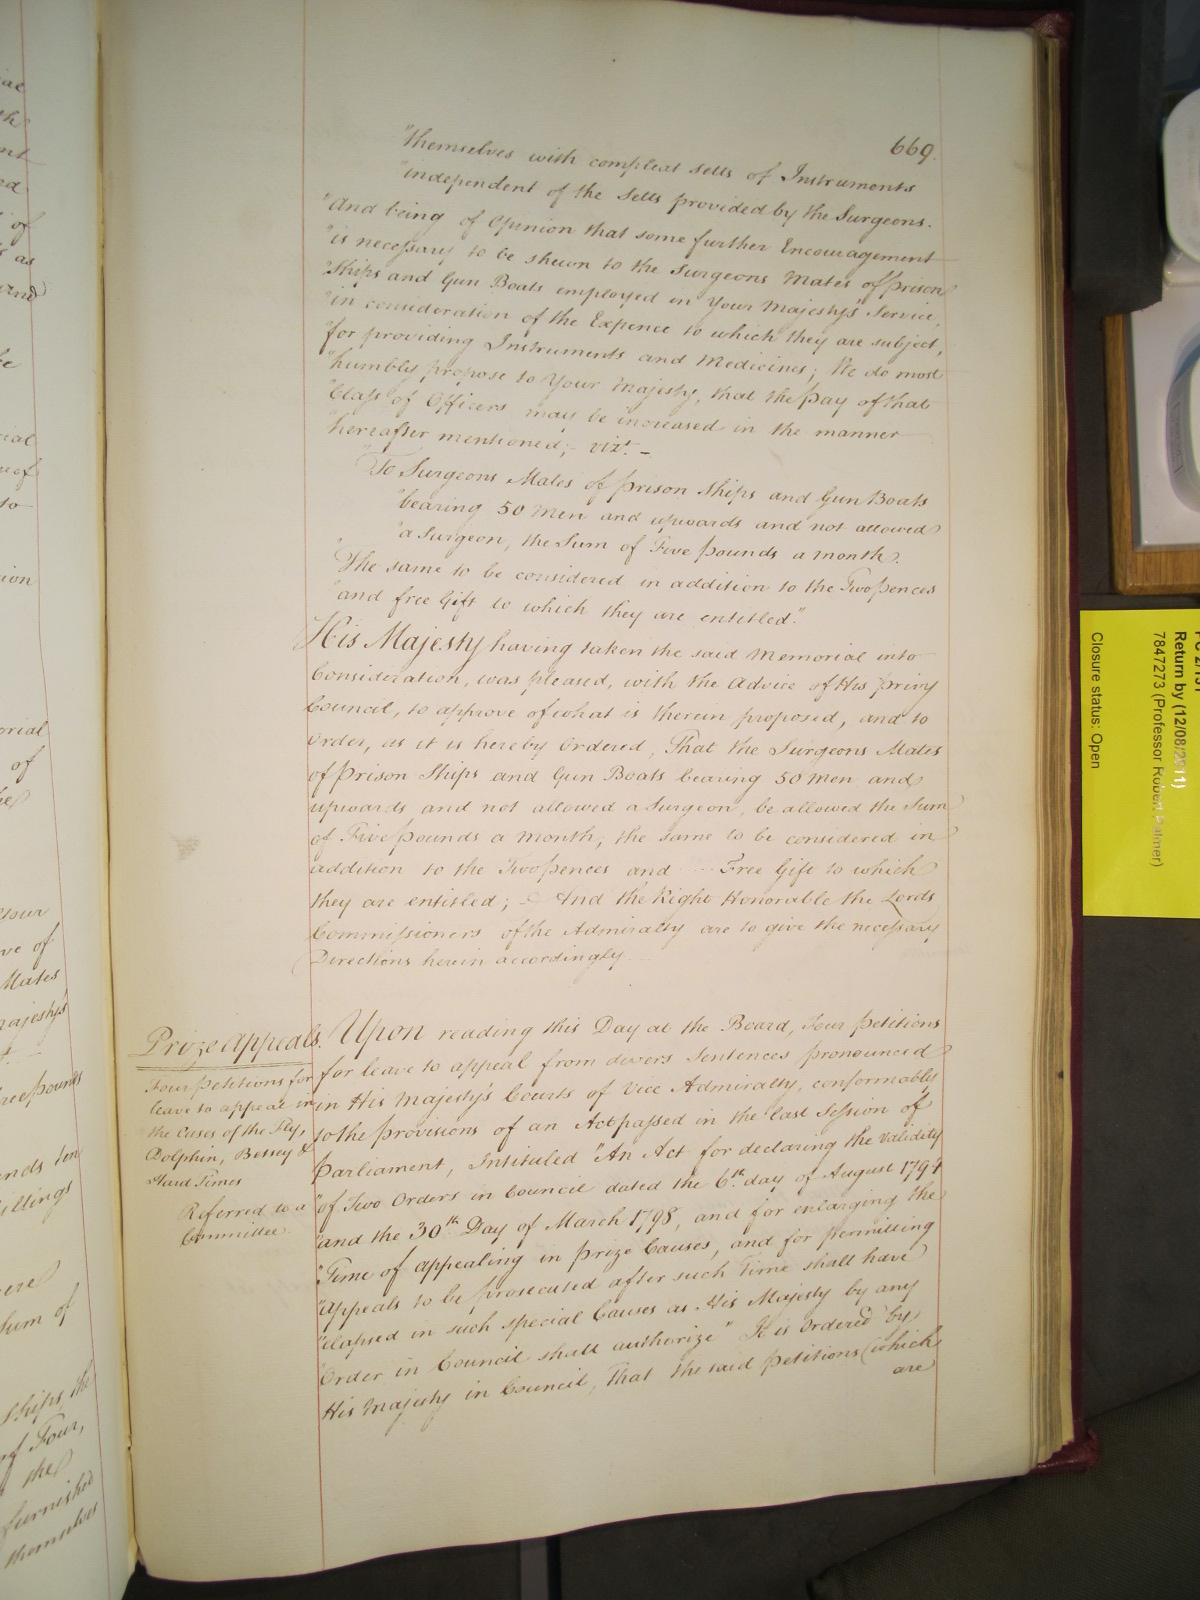 669.
"themselves with compleat setts of Instruments
"independent of the Setts provided by the Surgeons.
"And being of Opinion that some further Encouragement
"is necessary to be shewn to the Surgeons Mates of Prison
"Ships and Gun Boats employed in Your Majesty's Service,
"in consideration of the Expence to which they are subject,
"for providing Instruments and Medicines; We do most
"humbly propose to Your Majesty, that the Pay of that
"Class of Officers may be increased in the manner
"hereafter mentioned; – vizt. –
"To Surgeons Mates of Prison Ships and Gun Boats
"bearing 50 Men and upwards and not allowed
"a Surgeon, the Sum of Five Pounds a month.
"The same to be considered in addition to the Two Pences
"and free Gift to which they are entitled."
His Majesty having taken the said Memorial into
Consideration, was pleased, with the Advice of His Privy
Council, to approve of what is therein proposed, and to
Order, as it is hereby Ordered, That the Surgeons Mates
of Prison Ships and Gun Boats bearing 50 Men and
upwards and not allowed a Surgeon, be allowed the Sum
of Five Pounds a Month; the same to be considered in
addition to the Two Pences and Free Gift to which
they are entitled; And the Right Honorable the Lords
Commissioners of the Admiralty are to give the necessary
Directions herein accordingly
Prize Appeals.
Four Petitions for
leave to appeal in
the Cases of the Fly,
Dolphin, Bessey &
Hard Times
Referred to a
Committee
Upon reading this Day at the Board, Four Petitions
for leave to appeal from divers Sentences pronounced
in His Majesty's Courts of Vice Admiralty, conformably
to the provisions of an Act passed in the last Session of
Parliament, Intituled "An Act for declaring the validity
"of Two Orders in Council dated the 6th day of August 1794
"and the 30th Day of March 1798, and for enlarging the
"Time of appealing in Prize Causes, and for permitting
"Appeals to be prosecuted after such Time shall have
"elapsed in such special Causes as His Majesty by any
"Order in Council shall authorize" It is Ordered by
His Majesty in Council, That the said Petitions (which
are
Return by (12/08/2011)
7847273 (Professor Robert Palmer)
Closure status: Open